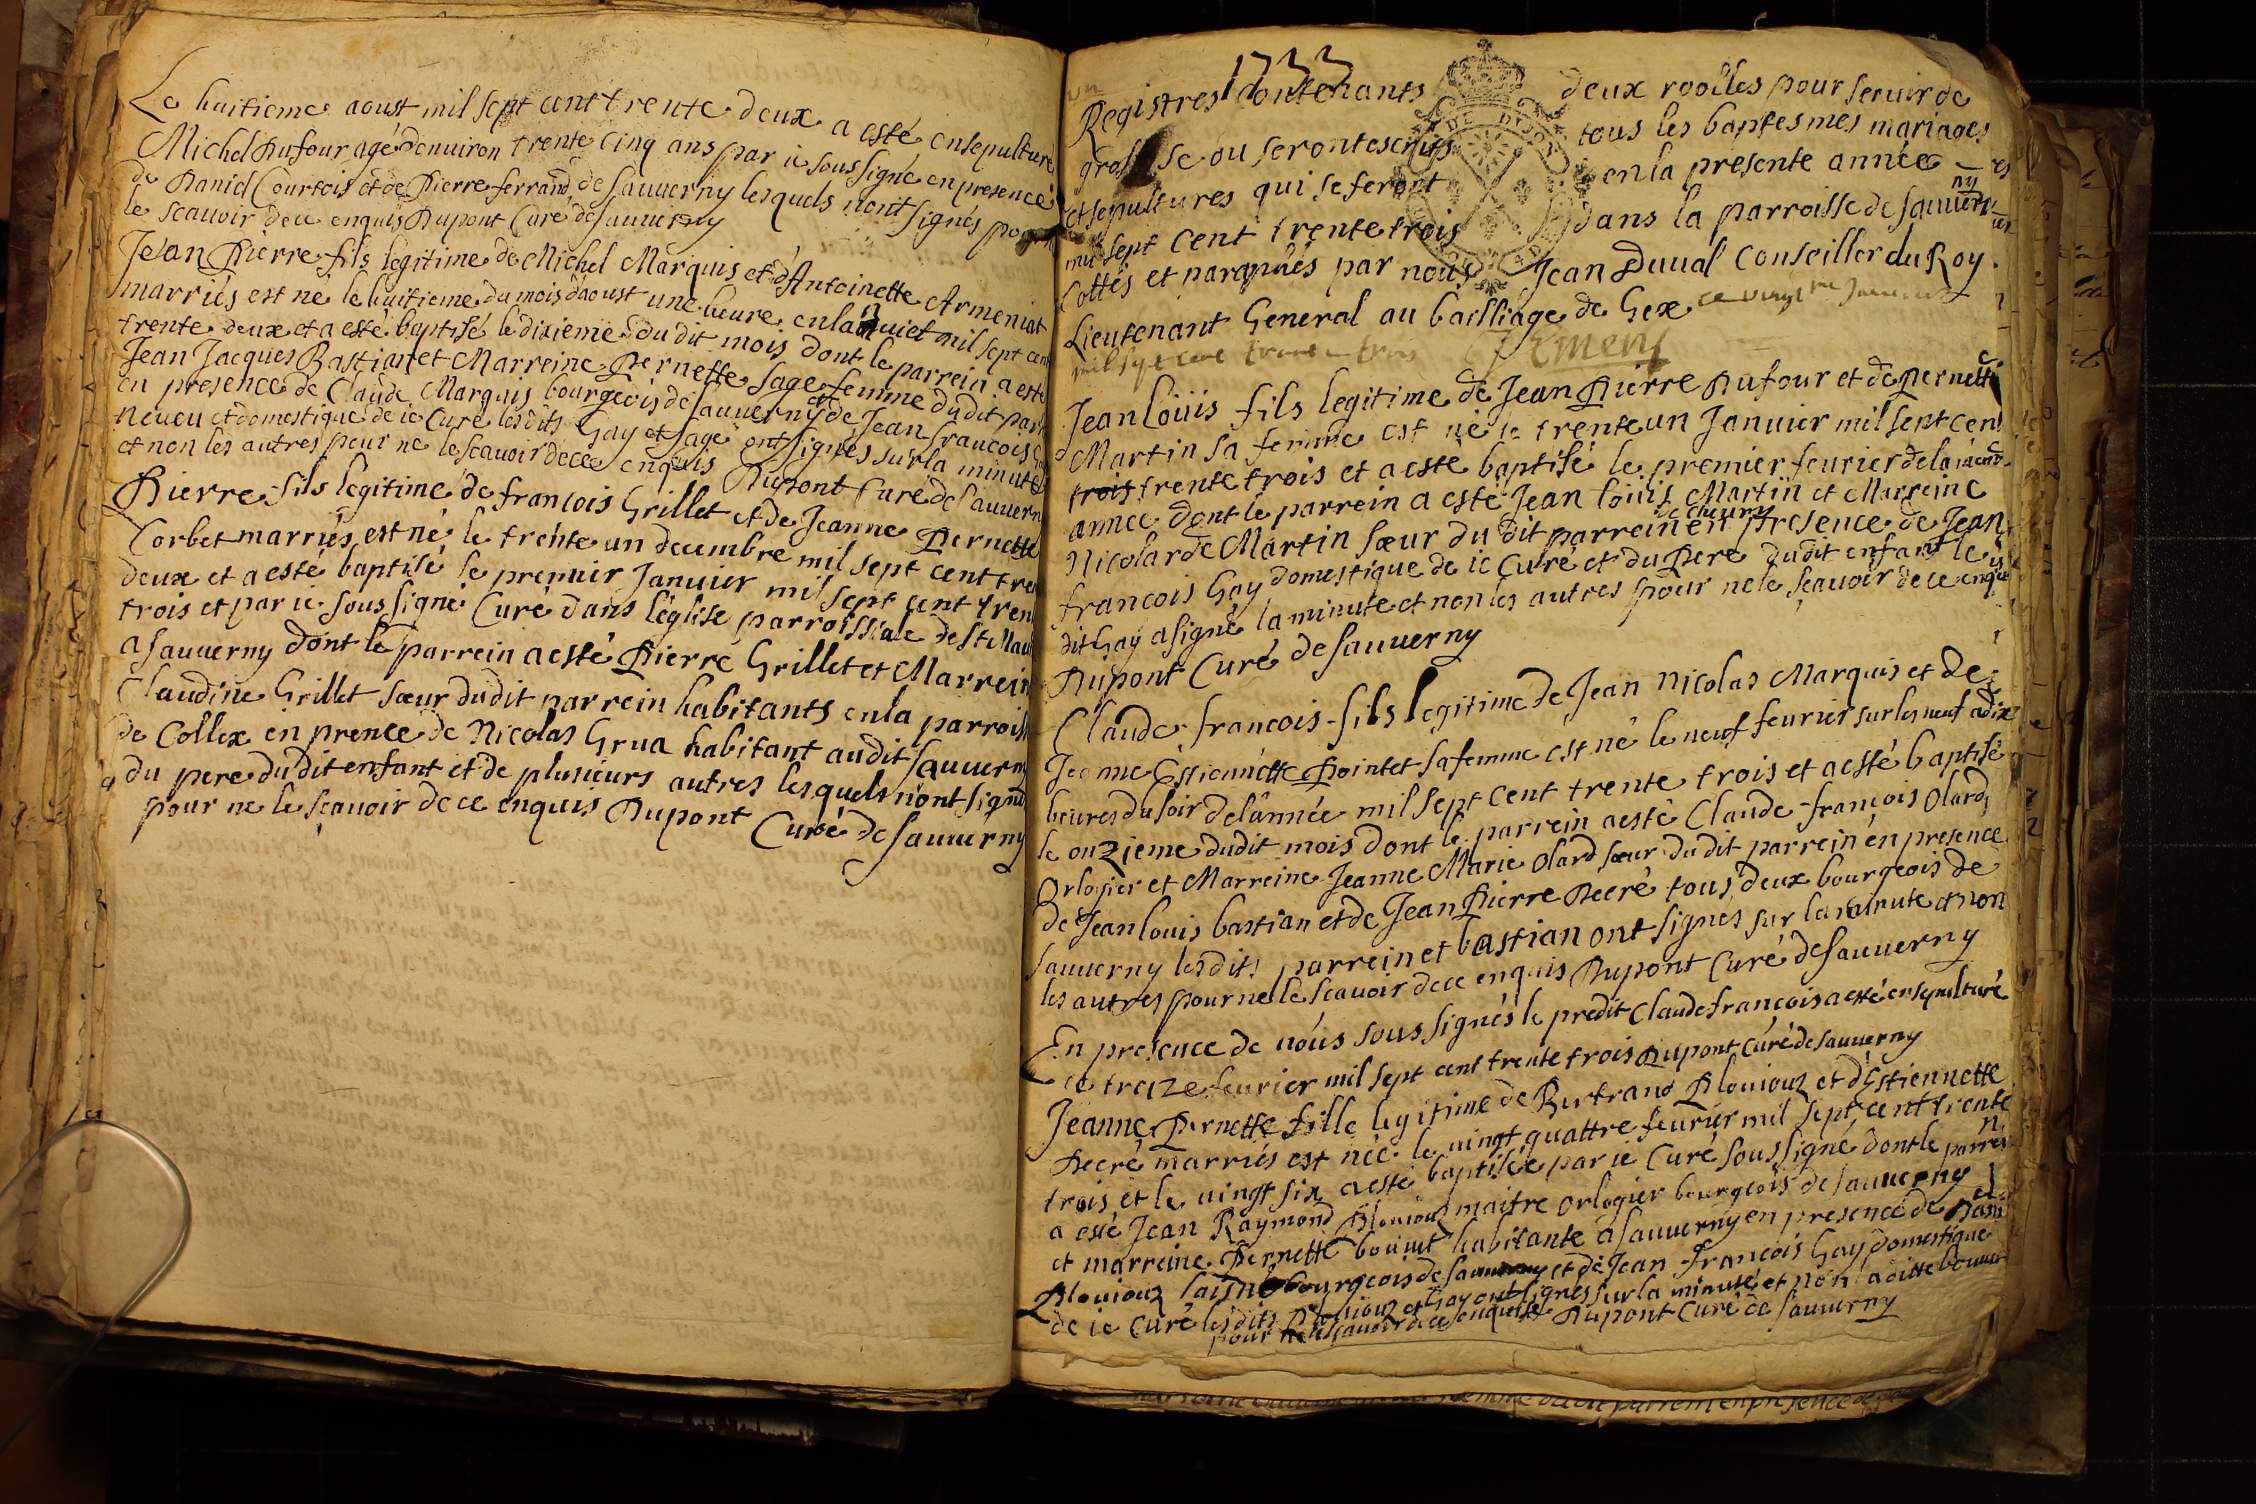 Le huitieme aoust mil sept cent trente deux a esté ensepulturé
Michel Dufour agé denuiron trente cinq ans par ie soussigné en presence
de Daniel Courtois et de Pierre ferrand de sauuerny lesquels nont signés pour
le scauoir de ce enquis Dupont Curé de sauuerny
Jean Pierre fils legitime de Michel Marquis et d'Antoinette Armeniat
marriés est né le huitieme du mois daoust une heure en la nuict mil sept cent
trente deux et a esté baptisé le dixieme du dit mois dont le parrein a esté
Jean Jacques Bastian et Marreine Pernette sage femme du dit parr
en presence de Claude Marquis bourgeois de sauuerny et de Jean francois
neueu et domestique de ie Curé lesdits Gay et sage ont signés sur la minute
et non les autres pour ne le scauoir de ce enquis Dupont Curé de sauuern
Pierre fils legitime de francois Grillet et de Jeanne Pernette
Corbet marriés est né le trente un decembre mil sept cent tren
deux et a esté baptisé le premier Januier mil sept cent tren
trois et par ie soussigné Curé dans l'église parroissiale de St Mau
a sauuerny dont le parrein a esté Pierre Grillet et Marrein
Claudine Grillet sœur dudit parrein habitants en la parroiss
de Collex en prence de Nicolas Grua habitant audit sauuern
du pere dudit enfant et de plusieurs autres lesquels n'ont signé
pour ne le sçauoir de ce enquis Dupont Curé de sauuerny
1733
Registres contenants deux roolles pour seruir de
grosse ou seront escrits tous les baptesmes mariages
et sepultures qui se feront en la presente année
mil sept cent trente trois dans la parroisse de sauuerny
Cottés et paraphés par nous Jean Duual Conseiller du Roy
Lieutenant General au bailliage de Gex ce
mil sept cent trente trois
Jean loüis fils legitime de Jean Pierre Dufour et de Pernette
Martin sa femme est né le trente un Januier mil sept cent
trois trente trois et a esté baptisé le premier feurier de la
année dont le parrein a esté Jean loüis Martin et Marreine
Nicolarde Martin sœur du dit parrein en presence de Jean
francois Gay domestique de ie Curé et du Pere dudit enfant le
dit Gay a signé la minute et non les autres pour ne le sçauoir de ce enquis
Dupont Curé de sauuerny
Claude francois fils legitime de Jean Nicolas Marquis et de
Jeanne Estiennette Pointet sa femme est né le neuf feurier sur les neuf a dix
heures du soir de l'année mil sept cent trente trois et a esté baptisé
le onzieme dudit mois dont le parrein a esté Claude françois Olard
Orlogier et Marreine Jeanne Marie Olard sœur du dit parrein en presence
de Jean louis bastian et de Jean Pierre Decré tous deux bourgeois de
sauuerny lesdits parrein et bastian ont signés sur la minute et non
les autres pour ne le scauoir de ce enquis Dupont Curé de sauuerny
En presence de nous soussignés le predit Claude françois a esté ensepulturé
ce treize feurier mil sept cent trente trois Dupont Curé de sauuerny
Jeanne Pernette fille legitime de Bertrand Plouiouz et d'Estiennette
Decré marriés est née le vingt quattre feurier mil sept cent trente
trois et le vingt six a esté baptisée par ie Curé soussigné dont le parrein
a esté Jean Raymond Plouiouz maitre Orlogier bourgeois de sauuerny
et marreine Pernette bouuet habitante a sauuerny en presence de
Plouiouz laisné bourgeois de sauuerny et de Jean francois Gay domestique
de ie Curé lesdits Plouiouz et Gay ont signés sur la minute et non la ditte bouuet
pour ne le scauoir de ce enquise Dupont Curé de sauuerny